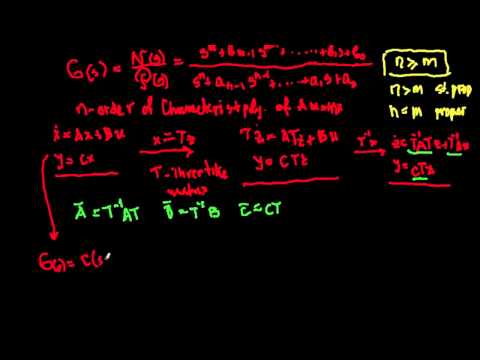 G(s) = N(s)/Q(s) = s^m + b_{m-1} s^{m-1} + ...... + b_1 s + b_0 / s^n + a_{n-1} s^{n-1} + ... + a_1 s + a_0
n ≥ m
n > m st. prop
n = m proper
n-order of Characterist poly. of A matrix
ẋ = Ax + Bu
y = Cx
x = Tz
T-invertible matrix
Tż = ATz + Bu
y = CTz
T^{-1}
ż = T^{-1}ATz + T^{-1}Bu
y = CTz
Ā = T^{-1}AT B̄ = T^{-1}B C̄ = CT
G(s) = C(s